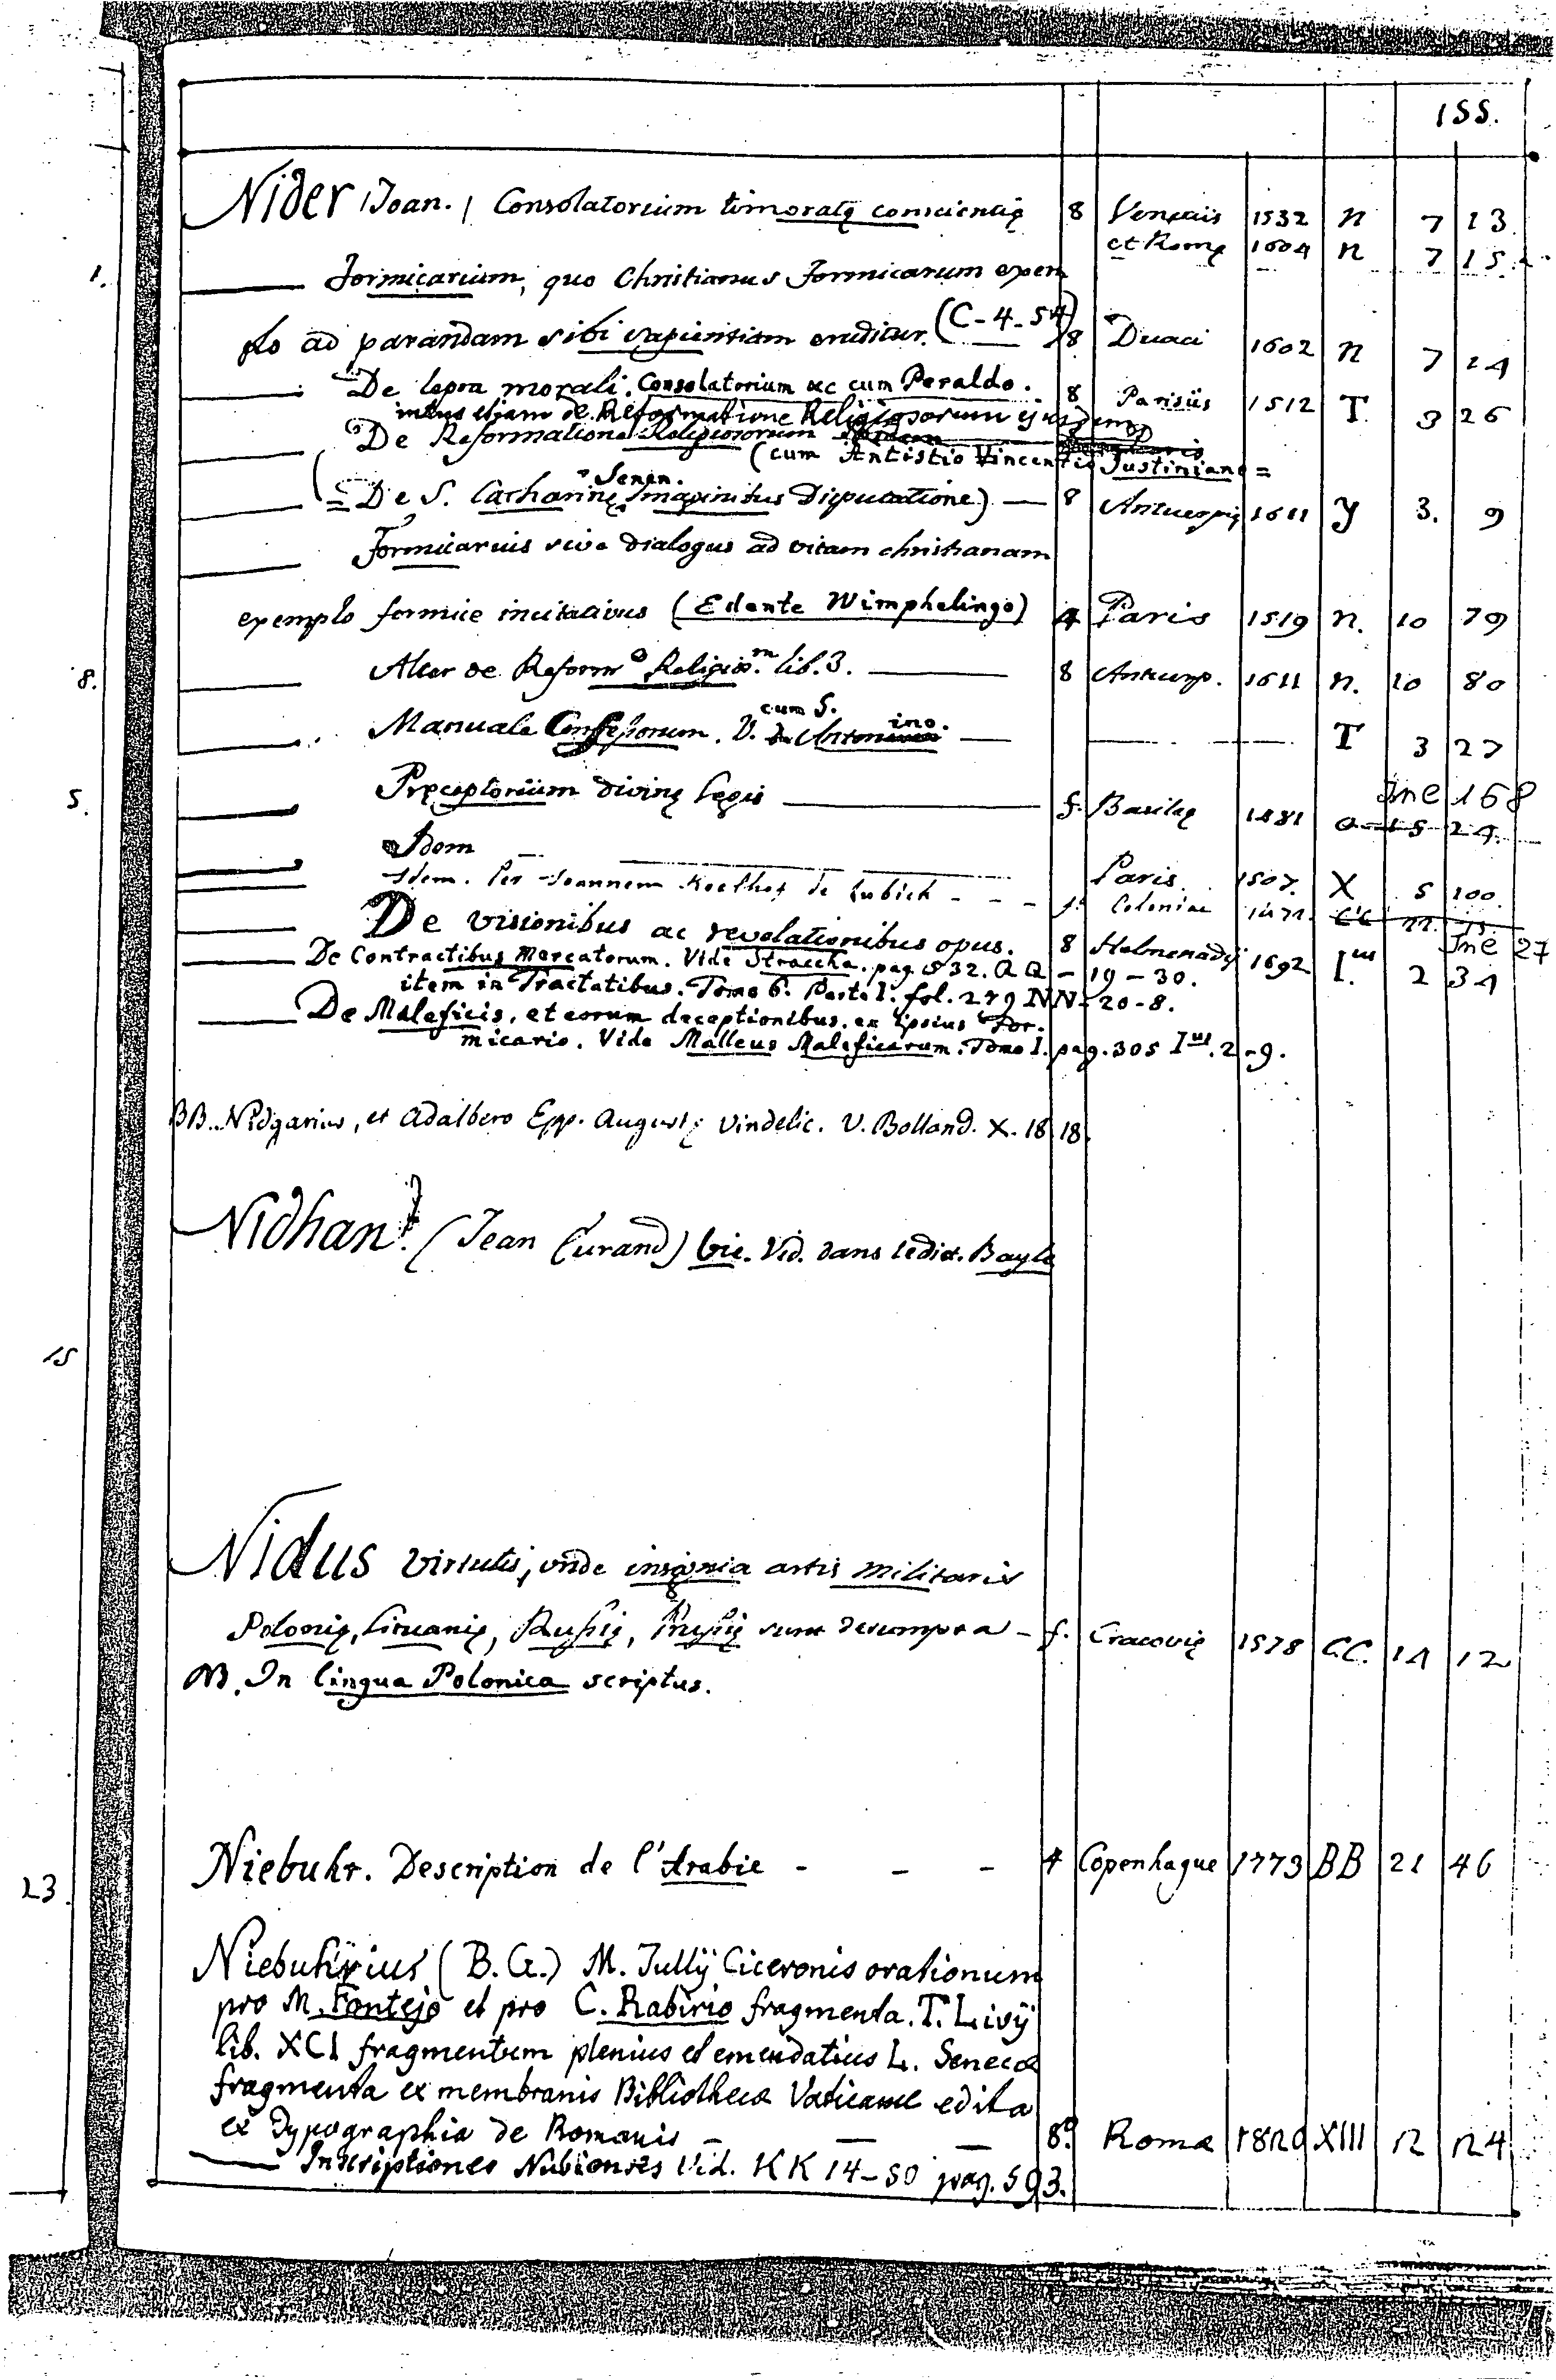 155.
Nider Joan. / Consolatorium timoratę conscientię 8 Venetiis 1532 n 7 13
et Romę 1604 n 7 15.
1. Formicarium, quo Christianus Formicarum exem
plo ad parandam sibi sapientiam eruditur. (C-4-54) 8 Duaci 1602 n 7 14
De lepra morali. Consolatorium ac cum Peraldo. 8 Parisiis 1512 T. 3 26
intus etiam de Reformatione Religiosorum ejusdem
De Reformatione Religiosorum
(cum Antistio Vincentio Justiniano =
= De S. Catharinę Senen. Imaginibus Disputatione) — 8 Antuerpię 1611 Y 3. 9
Formicarius sive dialogus ad vitam christianam
exemplo formice incitativus (Edente Wimphelingo) 4 Paris 1519 n. 10 79
8. Alter de Reform.e Religios.m lib. 3. — 8 Antuerp. 1611 n. 10 80
Manuale Confessorum. V. cum S. Antonino. — T 3 27
5. Pręceptorium divinę legis — f. Basileę 1481 Inc 168
Idem Paris. 1507. X 5 100.
Idem. Per Joannem Koelhof de Lubich - - - f. Coloniae Inc 27
De visionibus ac revelationibus opus. 8 Helmestadij 1692 I.us 2 34
De Contractibus Mercatorum. Vide Straccha. pag 532. QQ - 19 - 30.
item in Tractatibus. Tomo 6. Parte I. fol. 279 NN - 20 - 8.
De Maleficis, et eorum deceptionibus. ex ipsius For-
micario. Vide Malleus Maleficarum. Tomo I. pag. 305 I.us. 2 - 9.
BB. Nidgarius, et Adalbero Epp. Augustę Vindelic. V. Bolland. X. 18 18.
Nidhan. (Jean Evrand) Vie. Vid. dans le dict. Bayle
15
Nidus virtutis, unde insignia artis militaris
Polonię, Lituanię, Russię, Prussię sunt desumpta - f. Cracovię 1578 CC. 14 12
NB. In lingua Polonica scriptus.
23 Niebuhr. Description de l'Arabie - - - 4 Copenhague 1773 BB 21 46
Niebuhrius (B. G.) M. Tullij Ciceronis orationum
pro M. Fontejo et pro C. Rabirio fragmenta. T. Livij
lib. XCI fragmentum plenius et emendatius L. Senecæ
fragmenta ex membranis Bibliothecæ Vaticanæ edita
ex Typographia de Romanis — — — 8.o Romæ 1820 XIII 12 124
Inscriptiones Nubienses Vid. KK 14-50 pag. 593.